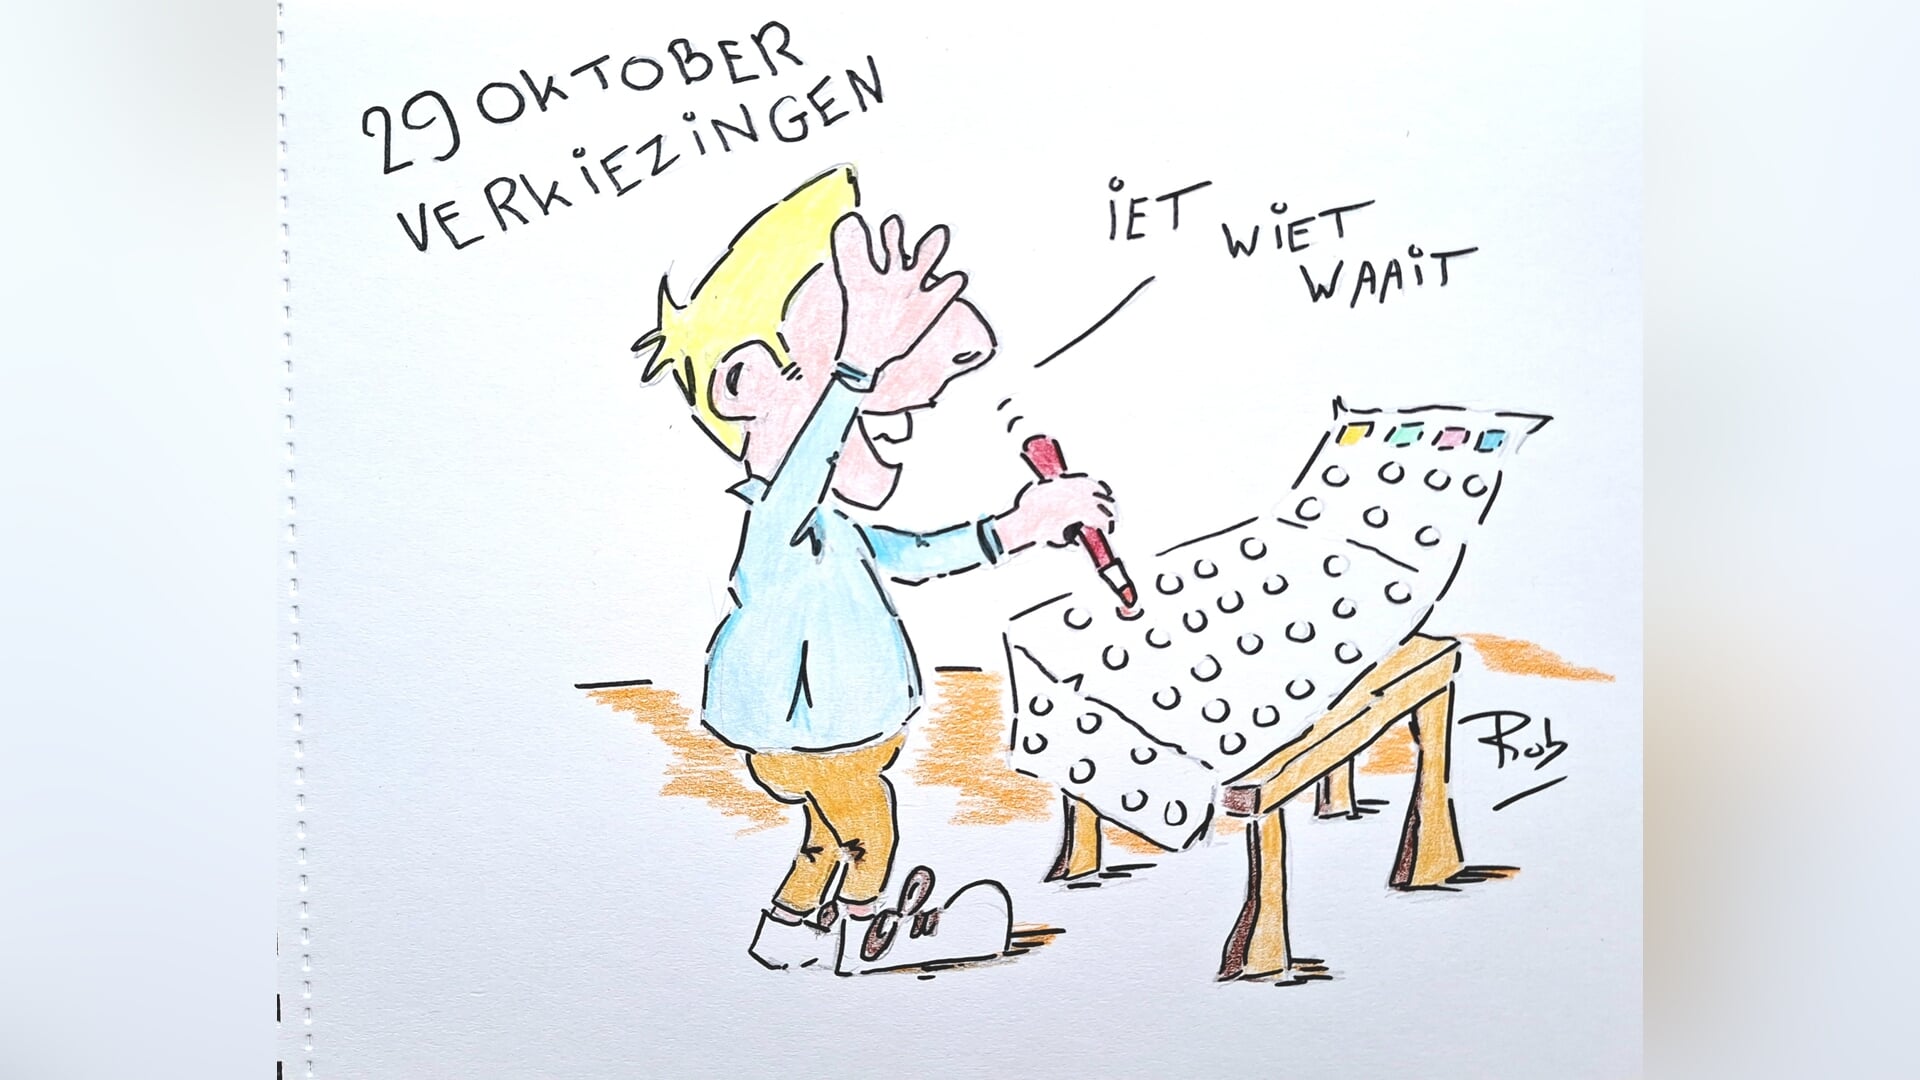 29 OKTOBER
VERKiEZiNGEN
iET WiET
WAAiT
Rob